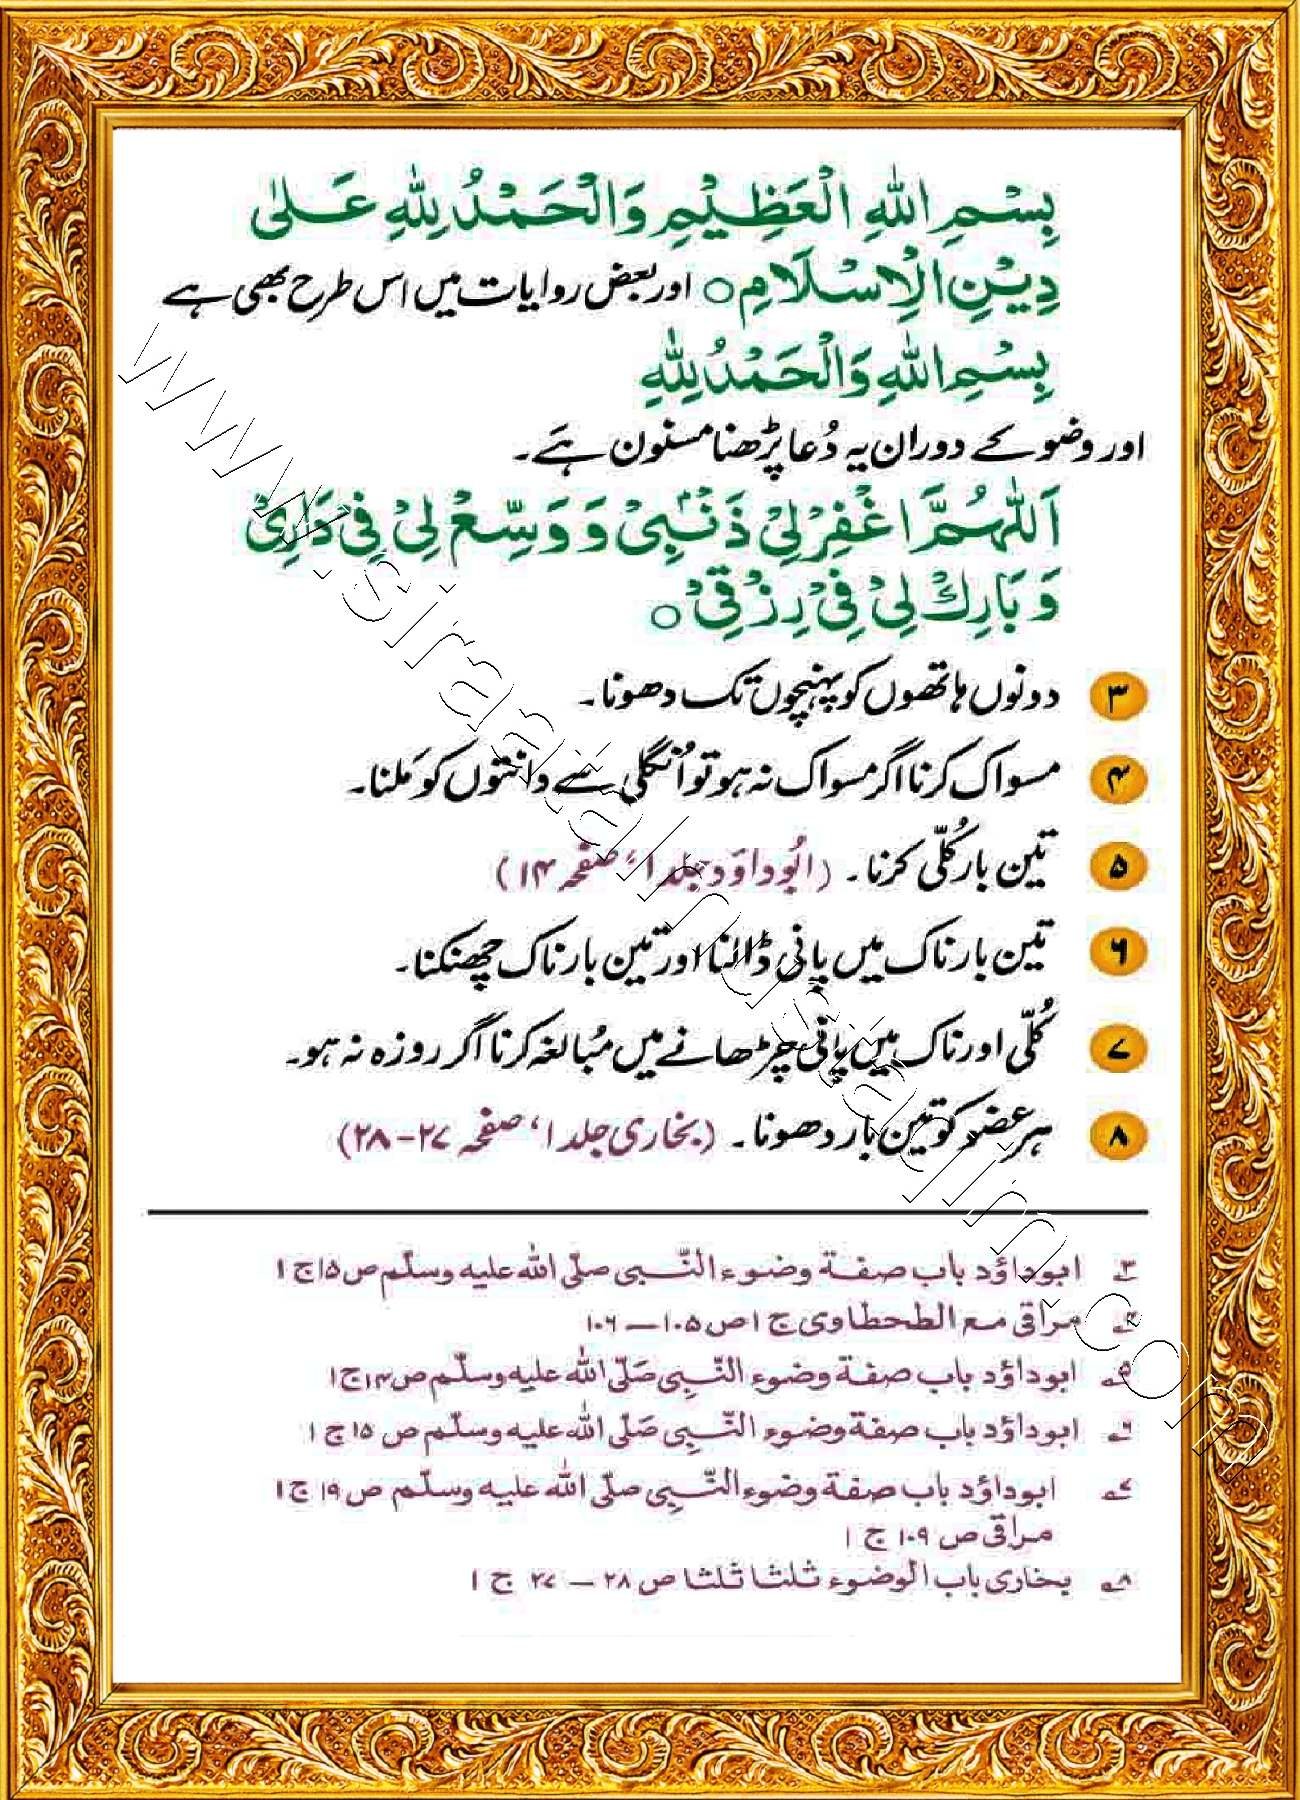 بِسْمِ اللهِ الْعَظِيْمِ وَالْحَمْدُ لِلّٰهِ عَلٰى
دِيْنِ الْاِسْلَامِ○ اور بعض روایات میں اس طرح بھی ہے
بِسْمِ اللهِ وَالْحَمْدُ لِلّٰهِ
اور وضو کے دوران یہ دُعا پڑھنا مسنون ہَے۔
اَللّٰهُمَّ اغْفِرْلِيْ ذَنْۢبِيْ وَ وَسِّعْ لِيْ فِيْ دَارِيْ
وَبَارِكْ لِيْ فِيْ رِزْقِيْ○
۳ دونوں ہاتھوں کو پہنچوں تک دھونا۔
۴ مسواک کرنا اگر مسواک نہ ہو تو اُنگلی سے دانتوں کو مَلنا۔
۵ تین بار کُلّی کرنا۔ (ابُوداوَد جلد ۱، صفحہ ۱۴)
۶ تین بار ناک میں پانی ڈالنا اور تین بار ناک چھنکنا۔
۷ کُلّی اور ناک میں پانی چڑھانے میں مُبالغہ کرنا اگر روزہ نہ ہو۔
۸ ہر عضو کو تین بار دھونا۔ (بخاری جلد ۱، صفحہ ۲۷–۲۸)
۳ه ابوداؤد باب صفة وضوء النّبی صلّی اللہ علیہ وسلّم ص۱۵ج۱
۴ه مراقی مع الطحطاوی ج ۱ص۱۰۵–۱۰۶
۵ه ابوداؤد باب صفة وضوء النّبِی صَلّی اللہ علیہ وسلّم ص۱۴ج۱
۶ه ابوداؤد باب صفة وضوء النّبِی صَلّی اللہ علیہ وسلّم ص ۱۵ج ۱
۷ه ابوداؤد باب صفة وضوء النّبِی صلّی اللہ علیہ وسلّم ص ۱۹ج ۱
مراقی ص ۱۰۹ ج ۱
۸ه بخاری باب الوضوء ثلثا ثلثا ص ۲۸ – ۲۷ ج ۱
www.siraatalmustaqim.com